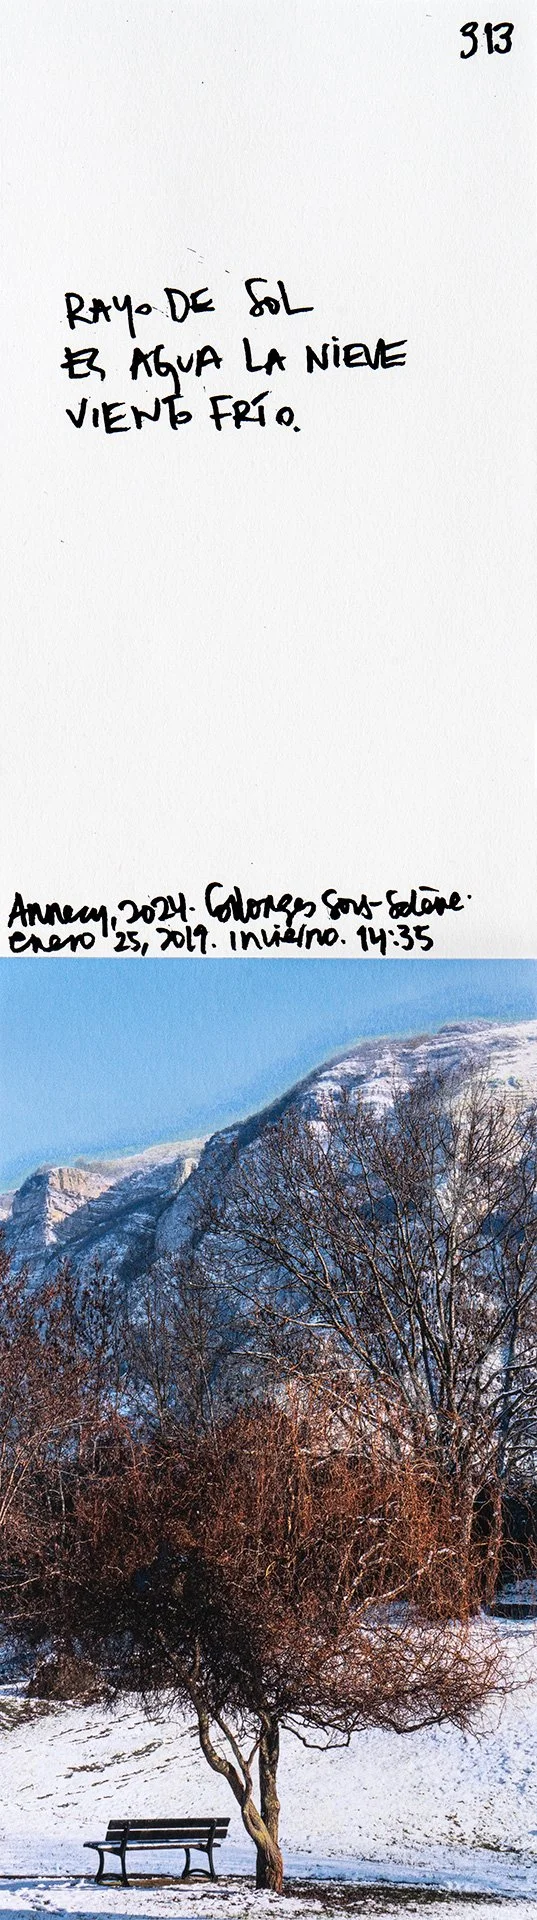 313
RAYO DE SOL
ES AGUA LA NIEVE
VIENTO FRÍO.
Annecy, 2024. Collonges Sous-Salève.
enero 25, 2019. invierno. 14:35